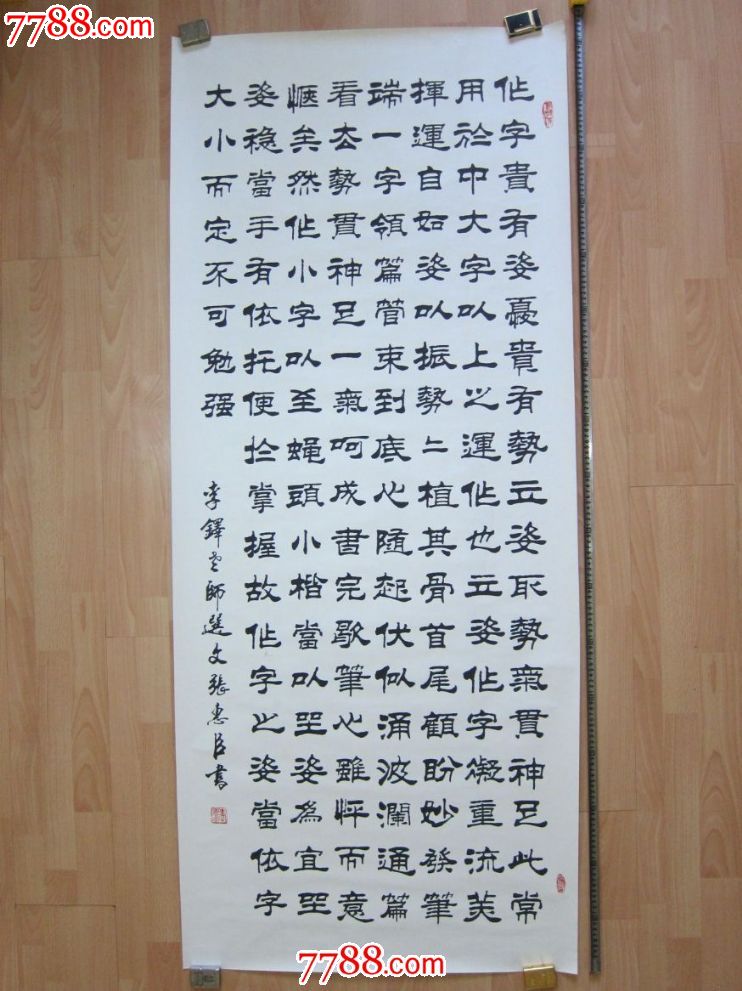 7788.com
7788.com
作字貴有姿憂貴有勢立姿取勢氣貫神足此常
用於中大字以上之運作也立姿作字凝重流美
揮運自如姿以振勢二植其骨首尾顧盼妙發筆
端一字領篇管束到底心隨起伏似涌波瀾通篇
看去勢貫神足一氣呵成書完歇筆心雖怦而意
愜矣然作小字以至蠅頭小楷當以坐姿為宜坐
姿穩當手有依托便於掌握故作字之姿當依字
大小而定不可勉强
李鐸老師選文張惠臣書
7788.com